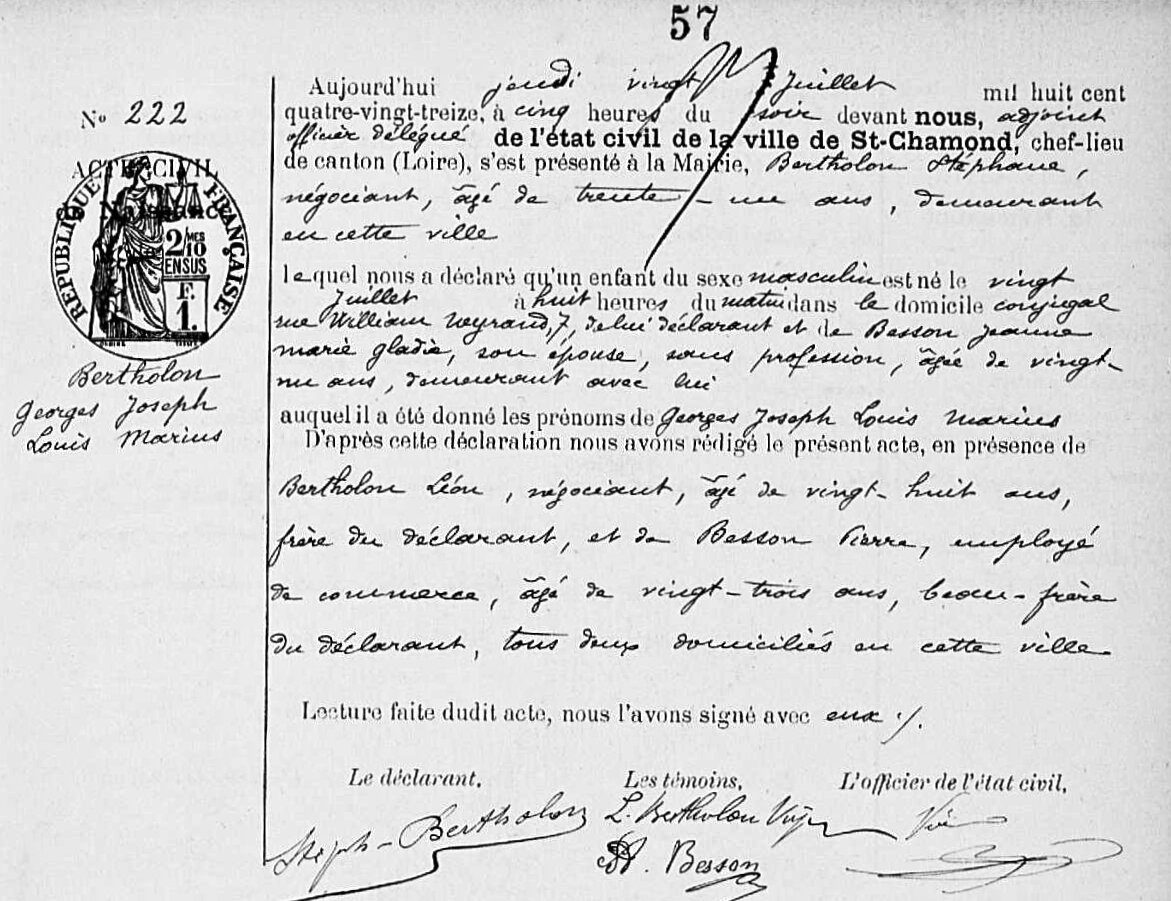 57
Aujourd'hui jeudi vingt Juillet mil huit cent
quatre-vingt-treize, à cinq heures du soir devant nous, adjoint
officier délégué de l'état civil de la ville de St-Chamond, chef-lieu
de canton (Loire), s'est présenté à la Mairie, Bertholon Stéphane,
négociant, âgé de trente-un ans, demeurant
en cette ville
lequel nous a déclaré qu'un enfant du sexe masculin est né le vingt
Juillet à huit heures du matin dans le domicile conjugal
rue William Neyrand, 7, de lui déclarant et de Besson Jeanne
marie gladie, son épouse, sans profession, âgée de vingt-
un ans, demeurant avec lui
auquel il a été donné les prénoms de Georges Joseph Louis Marius
D'après cette déclaration nous avons rédigé le présent acte, en présence de
Bertholon Léon, négociant, âgé de vingt-huit ans,
frère du déclarant, et de Besson Pierre, employé
de commerce, âgé de vingt-trois ans, beau-frère
du déclarant, tous deux domiciliés en cette ville
Lecture faite dudit acte, nous l'avons signé avec eux ./.
Le déclarant, Les témoins, L'officier de l'état civil,
Steph-Bertholon L. Bertholon
Besson
No 222
ACTE CIVIL
de Naissance
RÉPUBLIQUE FRANÇAISE
2/10 MES
EN SUS
F.
1.
Bertholon
Georges Joseph
Louis Marius